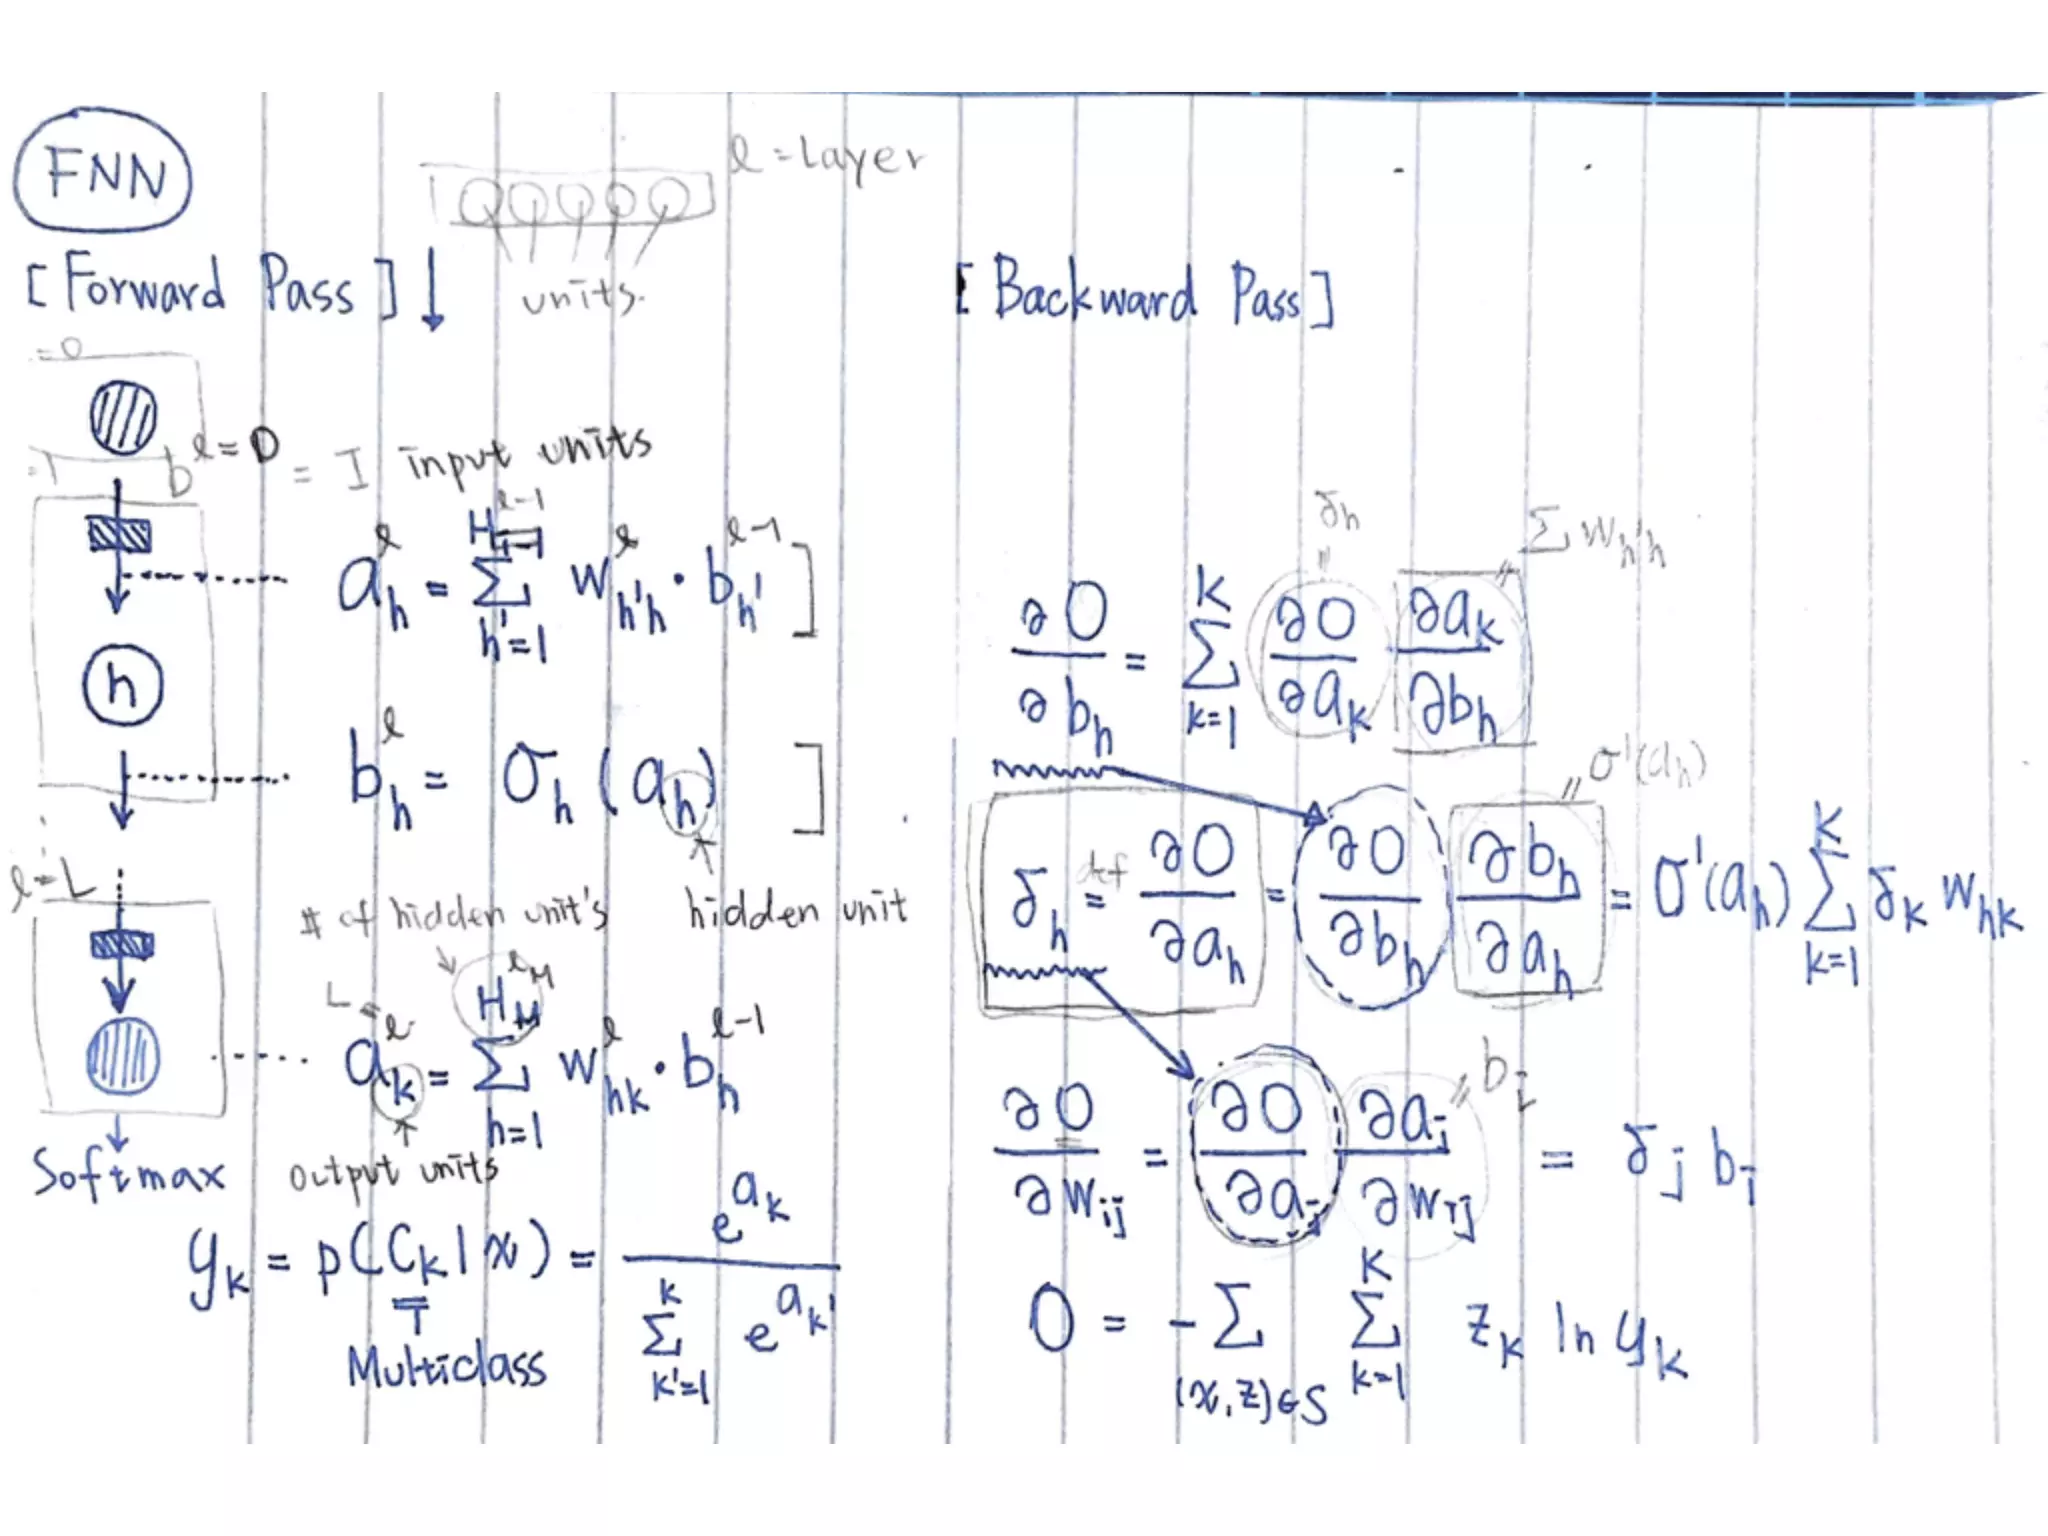 FNN
l = Layer
units.
[Forward Pass] ↓
= 0
b^{l=0} = I input units
a_h^l = Σ_{h'=1}^{H_{l-1}} w_{h'h}^l · b_{h'}^{l-1} ]
h
b_h^l = σ_h (a_h) ]
hidden unit
l = L
# of hidden unit's
L =
a_k^l = Σ_{h=1}^{H_M} w_{hk}^l · b_h^{l-1}
output units
Softmax
y_k = p(C_k | x) = e^{a_k} / Σ_{k'=1}^{K} e^{a_{k'}}
Multiclass
[Backward Pass]
δ_h
Σ w_{h'h}
∂O/∂b_h = Σ_{k=1}^{K} ∂O/∂a_k ∂a_k/∂b_h
σ'(a_h)
δ_h =^{def} ∂O/∂a_h = ∂O/∂b_h ∂b_h/∂a_h = σ'(a_h) Σ_{k=1}^{K} δ_k w_{hk}
b_i
∂O/∂w_{ij} = ∂O/∂a_j ∂a_j/∂w_{ij} = δ_j b_i
O = - Σ_{(x,z)∈S} Σ_{k=1}^{K} z_k ln y_k